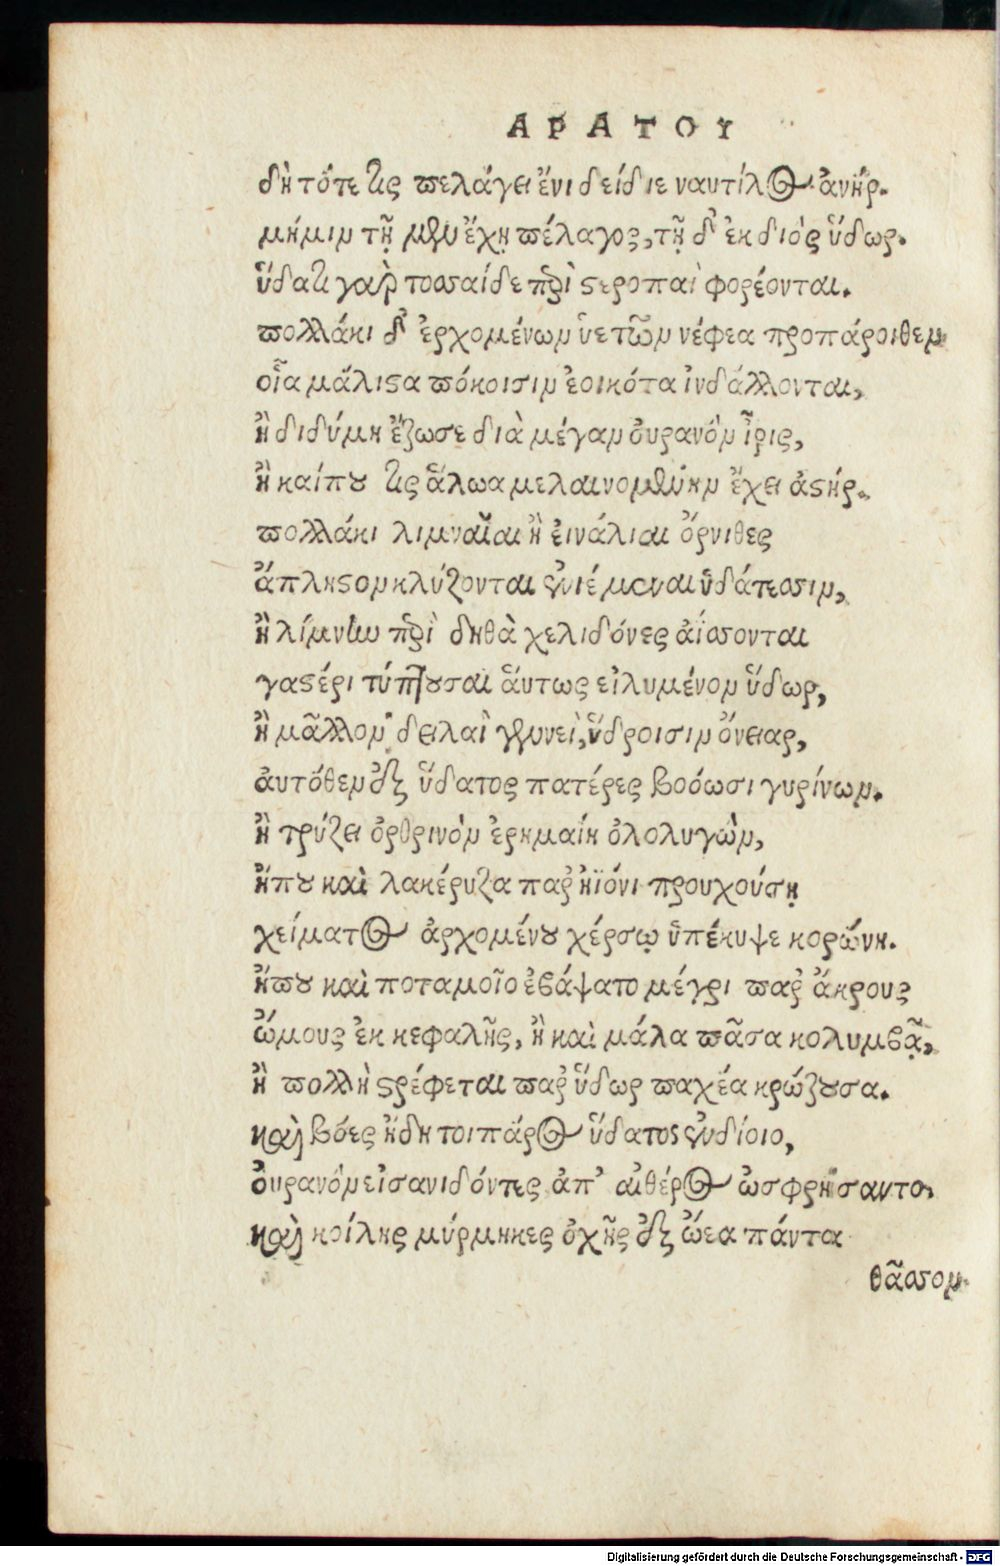 ΑΡΑΤΟΥ
δὴ τότε τις πελάγει ἔνι δείδιε ναυτίλος ἀνήρ.
μήμιν τῇ μὲν ἔχῃ πέλαγος, τῇ δ' ἐκ διὸς ὕδωρ.
ὕδατι γὰρ τοσσαίδε περὶ στεροπαὶ φορέονται.
πολλάκι δ' ἐρχομένων ὑετῶν νέφεα προπάροιθεν
οἷα μάλιστα πόκοισιν ἐοικότα ἰνδάλλονται,
ἢ διδύμη ἔζωσε διὰ μέγαν οὐρανὸν ἶρις,
ἢ καίπου τις ἅλωα μελαινομένην ἔχει ἀστήρ.
πολλάκι λιμναῖαι ἢ εἰνάλιαι ὄρνιθες
ἄπληστον κλύζονται ἐνιέμεναι ὑδάτεσσιν,
ἢ λίμνην περὶ δηθὰ χελιδόνες ἀΐσσονται
γαστέρι τύπτουσαι αὕτως εἰλυμένον ὕδωρ,
ἢ μᾶλλον δειλαὶ γενεὶ, ὕδροισιν ὄνειαρ,
αὐτόθεν ἐξ ὕδατος πατέρες βοόωσι γυρίνων.
ἢ τρύζει ὀρθρινὸν ἐρημαίη ὀλολυγὼν,
ἤπου καὶ λακέρυζα παρ' ἠϊόνι προυχούσῃ
χείματος ἀρχομένου χέρσῳ ὑπέκυψε κορώνη.
ἤπου καὶ ποταμοῖο ἐβάψατο μέχρι παρ' ἄκρους
ὤμους ἐκ κεφαλῆς, ἢ καὶ μάλα πᾶσα κολυμβᾷ,
ἢ πολλὴ στρέφεται παρ' ὕδωρ παχέα κρώζουσα.
καὶ βόες ἤδη τοι πάρος ὕδατος ἐνδίοιο,
οὐρανὸν εἰσανιδόντες ἀπ' αἰθέρος ὠσφρήσαντο,
καὶ κοίλης μύρμηκες ὀχῆς ἐξ ὤεα πάντα
θᾶσσον
Digitalisierung gefördert durch die Deutsche Forschungsgemeinschaft - DFG